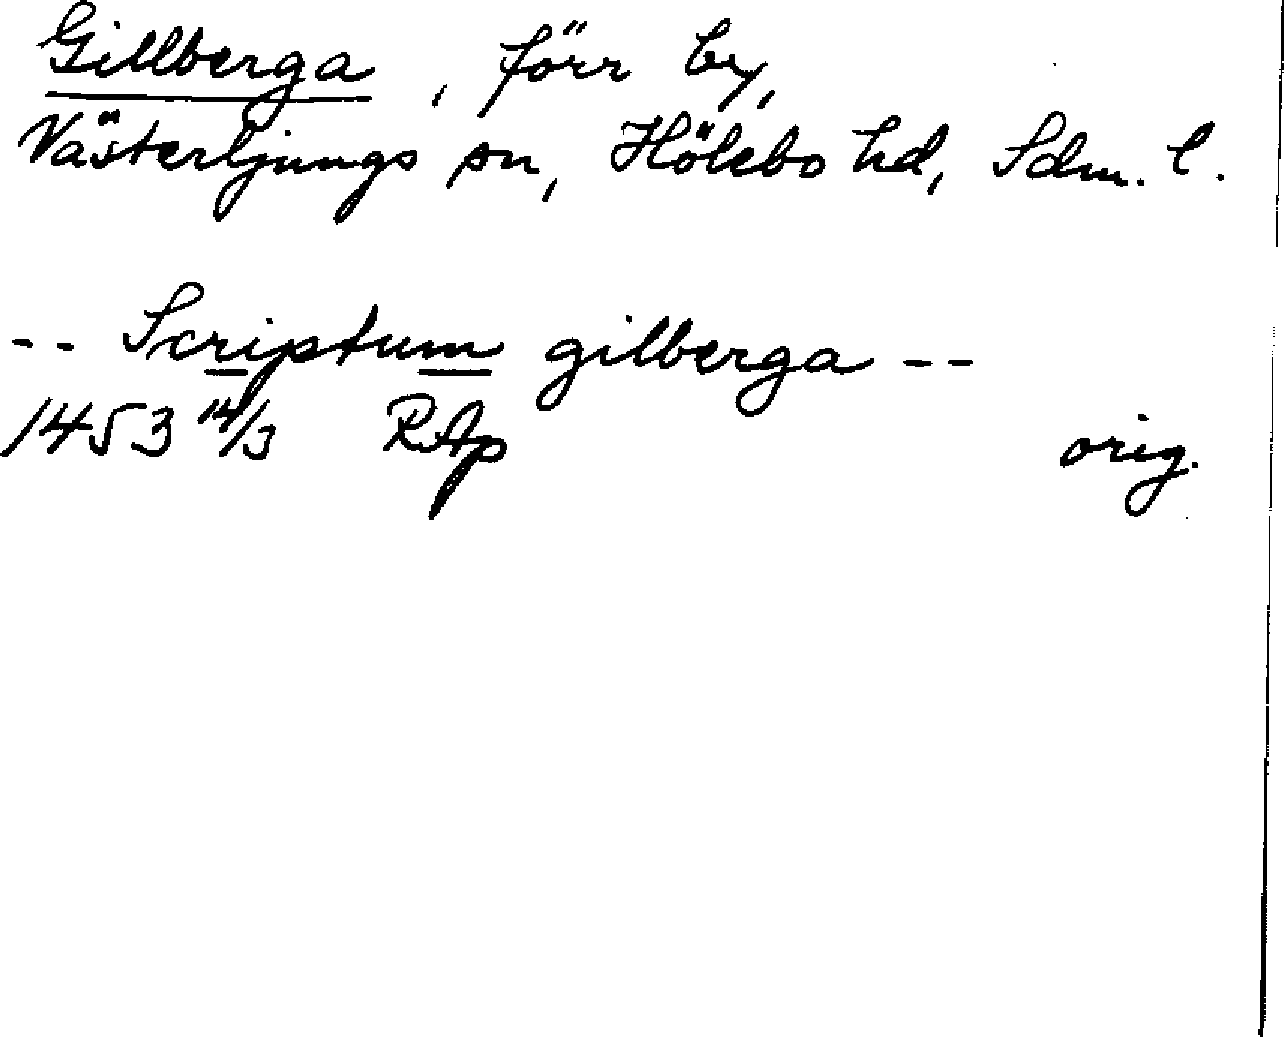 Gillberga, förr by,
Västerljungs sn, Hölebo hd, Sdm. l.
-- Scriptum gilberga --
1453 14/3 RAp orig.